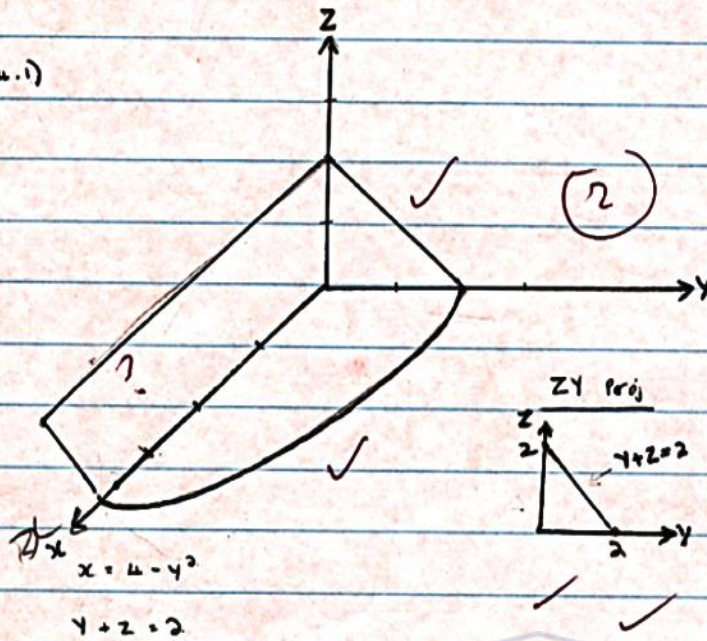 Z
.1)
2
Y
?
ZY Proj
Z
2
Y+Z=2
Y
2
x
x = 4 - y²
Y + Z = 2